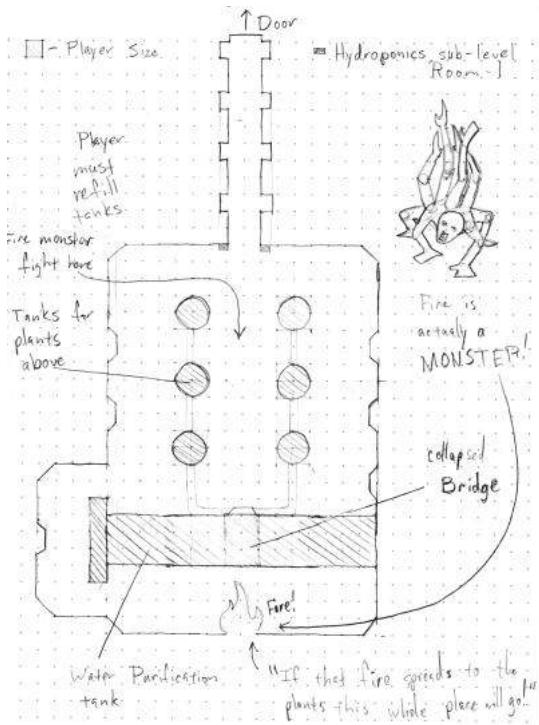 Door
- Player Size
- Hydroponics sub-level
Room-1
Player
must
refill
tanks
Fire monster
fight here
Tanks for
plants
above
Fire is
actualy a
MONSTER!
collapsed
Bridge
Fire!
Water Purification
tank
"If that fire spreads to the
plants this whole place will go!"